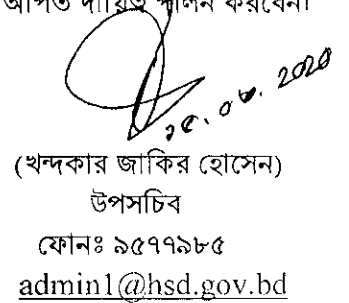 অর্পিত দায়িত্ব পালন করবেন।
(খন্দকার জাকির হোসেন)
উপসচিব
ফোনঃ ৯৫৭৭৯৮৫
admin1@hsd.gov.bd